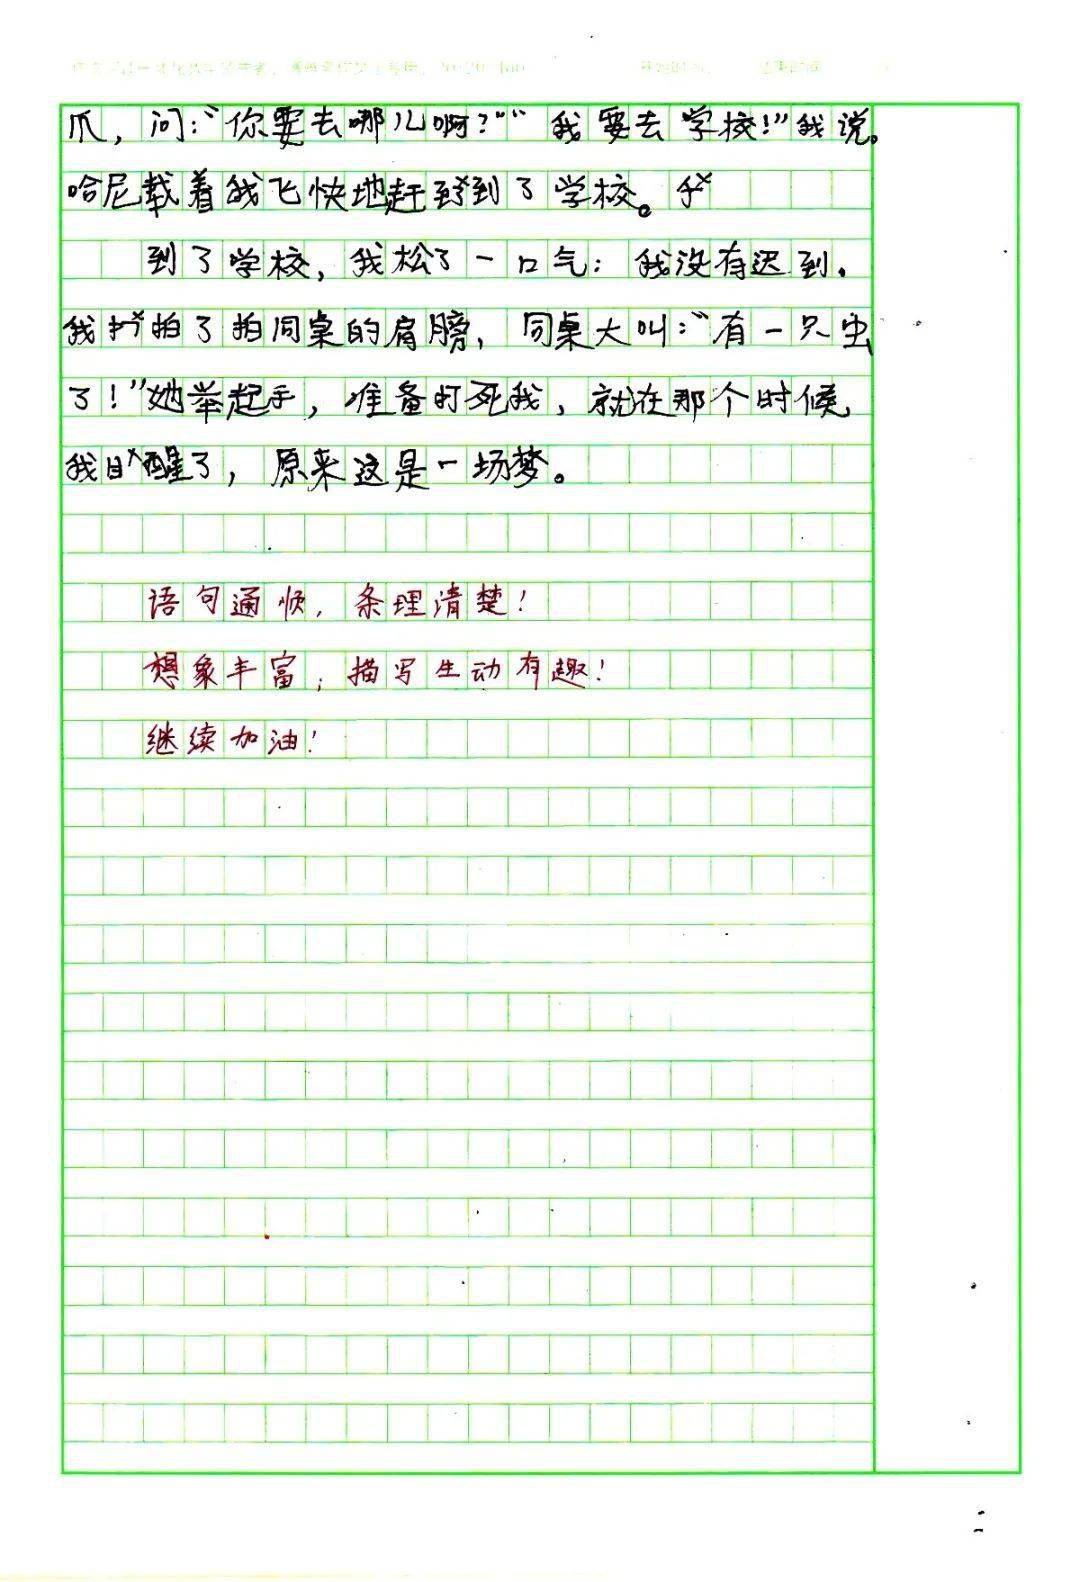 爪，问：“你要去哪儿啊？”“我要去学校！”我说。
哈尼载着我飞快地赶到了学校。
到了学校，我松了一口气：我没有迟到。
我拍了拍同桌的肩膀，同桌大叫：“有一只虫
了！”她举起手，准备打死我，就在那个时候，
我醒了，原来这是一场梦。
语句通顺，条理清楚！
想象丰富，描写生动有趣！
继续加油！